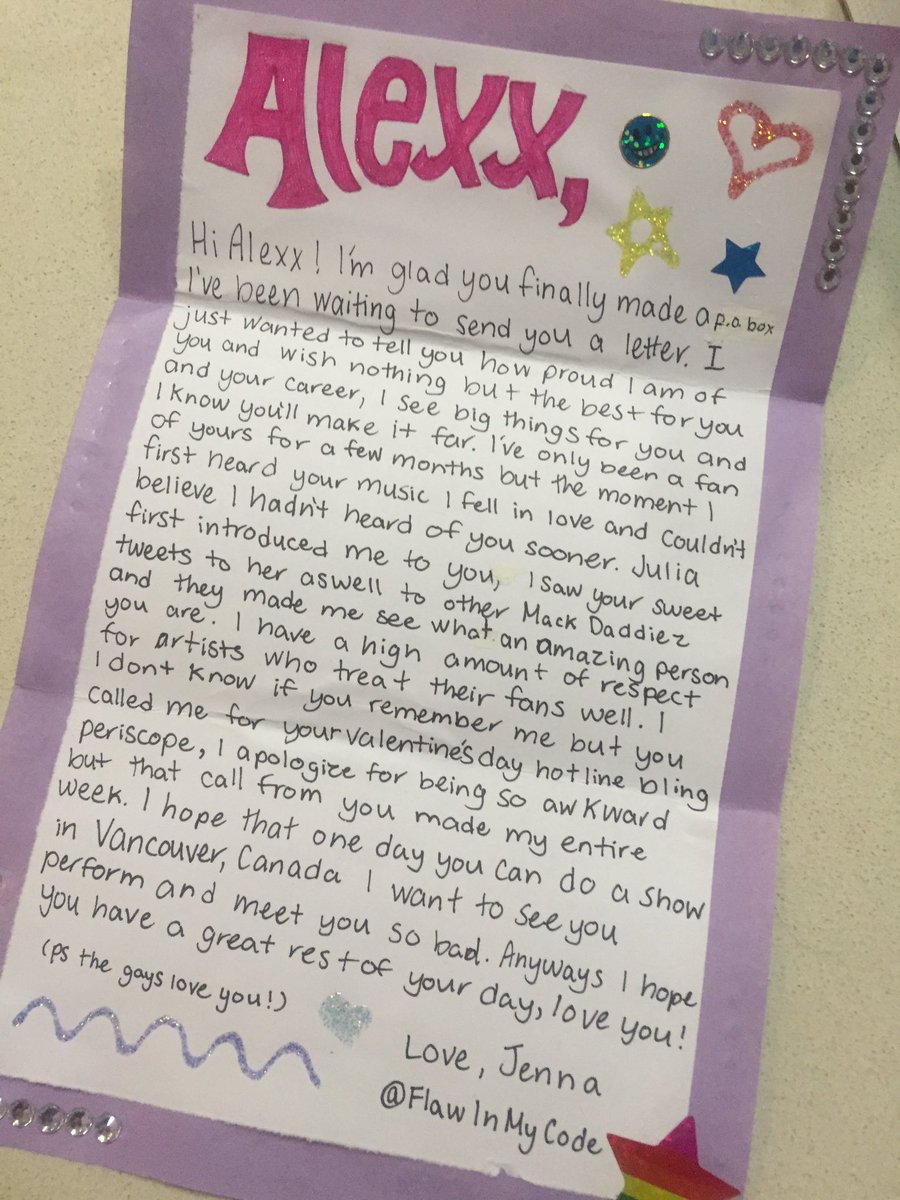 Alexx,
Hi Alexx! I'm glad you finally made a p.o. box
I've been waiting to send you a letter. I
just wanted to tell you how proud I am of
you and wish nothing but the best for you
and your career, I see big things for you and
I know you'll make it far. I've only been a fan
of yours for a few months but the moment I
first heard your music I fell in love and couldn't
believe I hadn't heard of you sooner. Julia
first introduced me to you, I saw your sweet
tweets to her aswell to other Mack Daddiez
and they made me see what an amazing person
you are. I have a high amount of respect
for artists who treat their fans well. I
I dont know if you remember me but you
called me for your valentine's day hotline bling
periscope, I apologize for being so awkward
but that call from you made my entire
week. I hope that one day you can do a show
in Vancouver, Canada I want to see you
perform and meet you so bad. Anyways I hope
you have a great rest of your day, love you!
(ps the gays love you!)
Love, Jenna
@FlawInMyCode